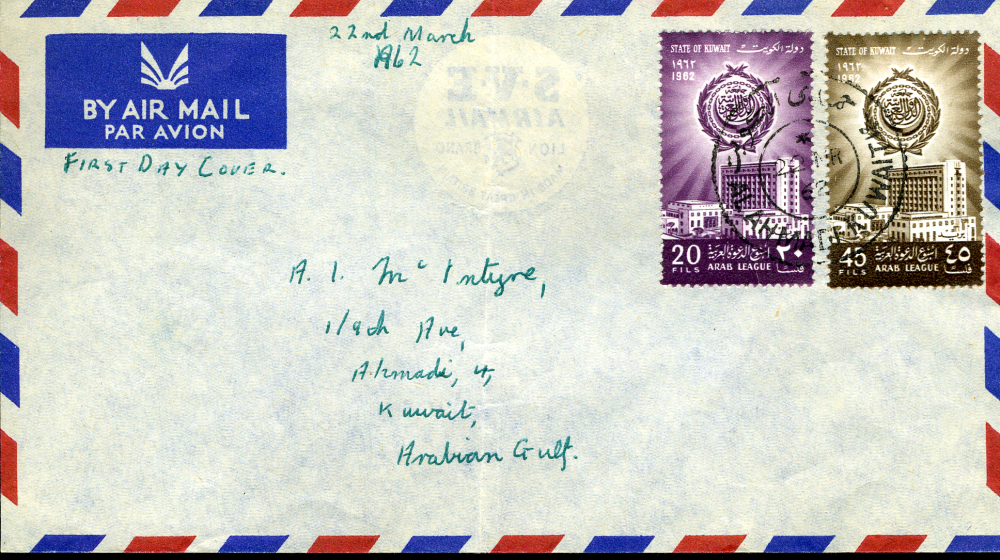 22nd March
1962
BY AIR MAIL
PAR AVION
FIRST DAY COVER.
S.V.E
AIRMAIL
LION BRAND
STATE OF KUWAIT دولة الكويت
١٩٦٢
1962
20 FILS
اسبوع الدعوة العربية
ARAB LEAGUE
٢٠ فلسا
STATE OF KUWAIT دولة الكويت
١٩٦٢
1962
45 FILS
اسبوع الدعوة العربية
ARAB LEAGUE
٤٥ فلسا
AHMADI KUWAIT
A. I. McIntyre,
1/9th Ave,
Ahmadi, 4,
Kuwait,
Arabian Gulf.